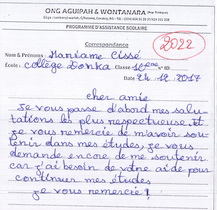 ONG AGUIPAH & WONTANARA
PROGRAMME D'ASSISTANCE SCOLAIRE
Correspondance
2022
Nom & Prénoms: Mariame Cissé
Ecole: Collège Donka Classe: 10ème ID:
Date 24.12.2017
cher amie
Je vous passe d'abord mes salu-
tations les plus respectueuse. et
je vous remercie de m'avoir sou-
tenir dans mes études. je vous
demande encore de me soutenir
car j'ai besoin de votre aide pour
continuer mes études
je vous remercie!